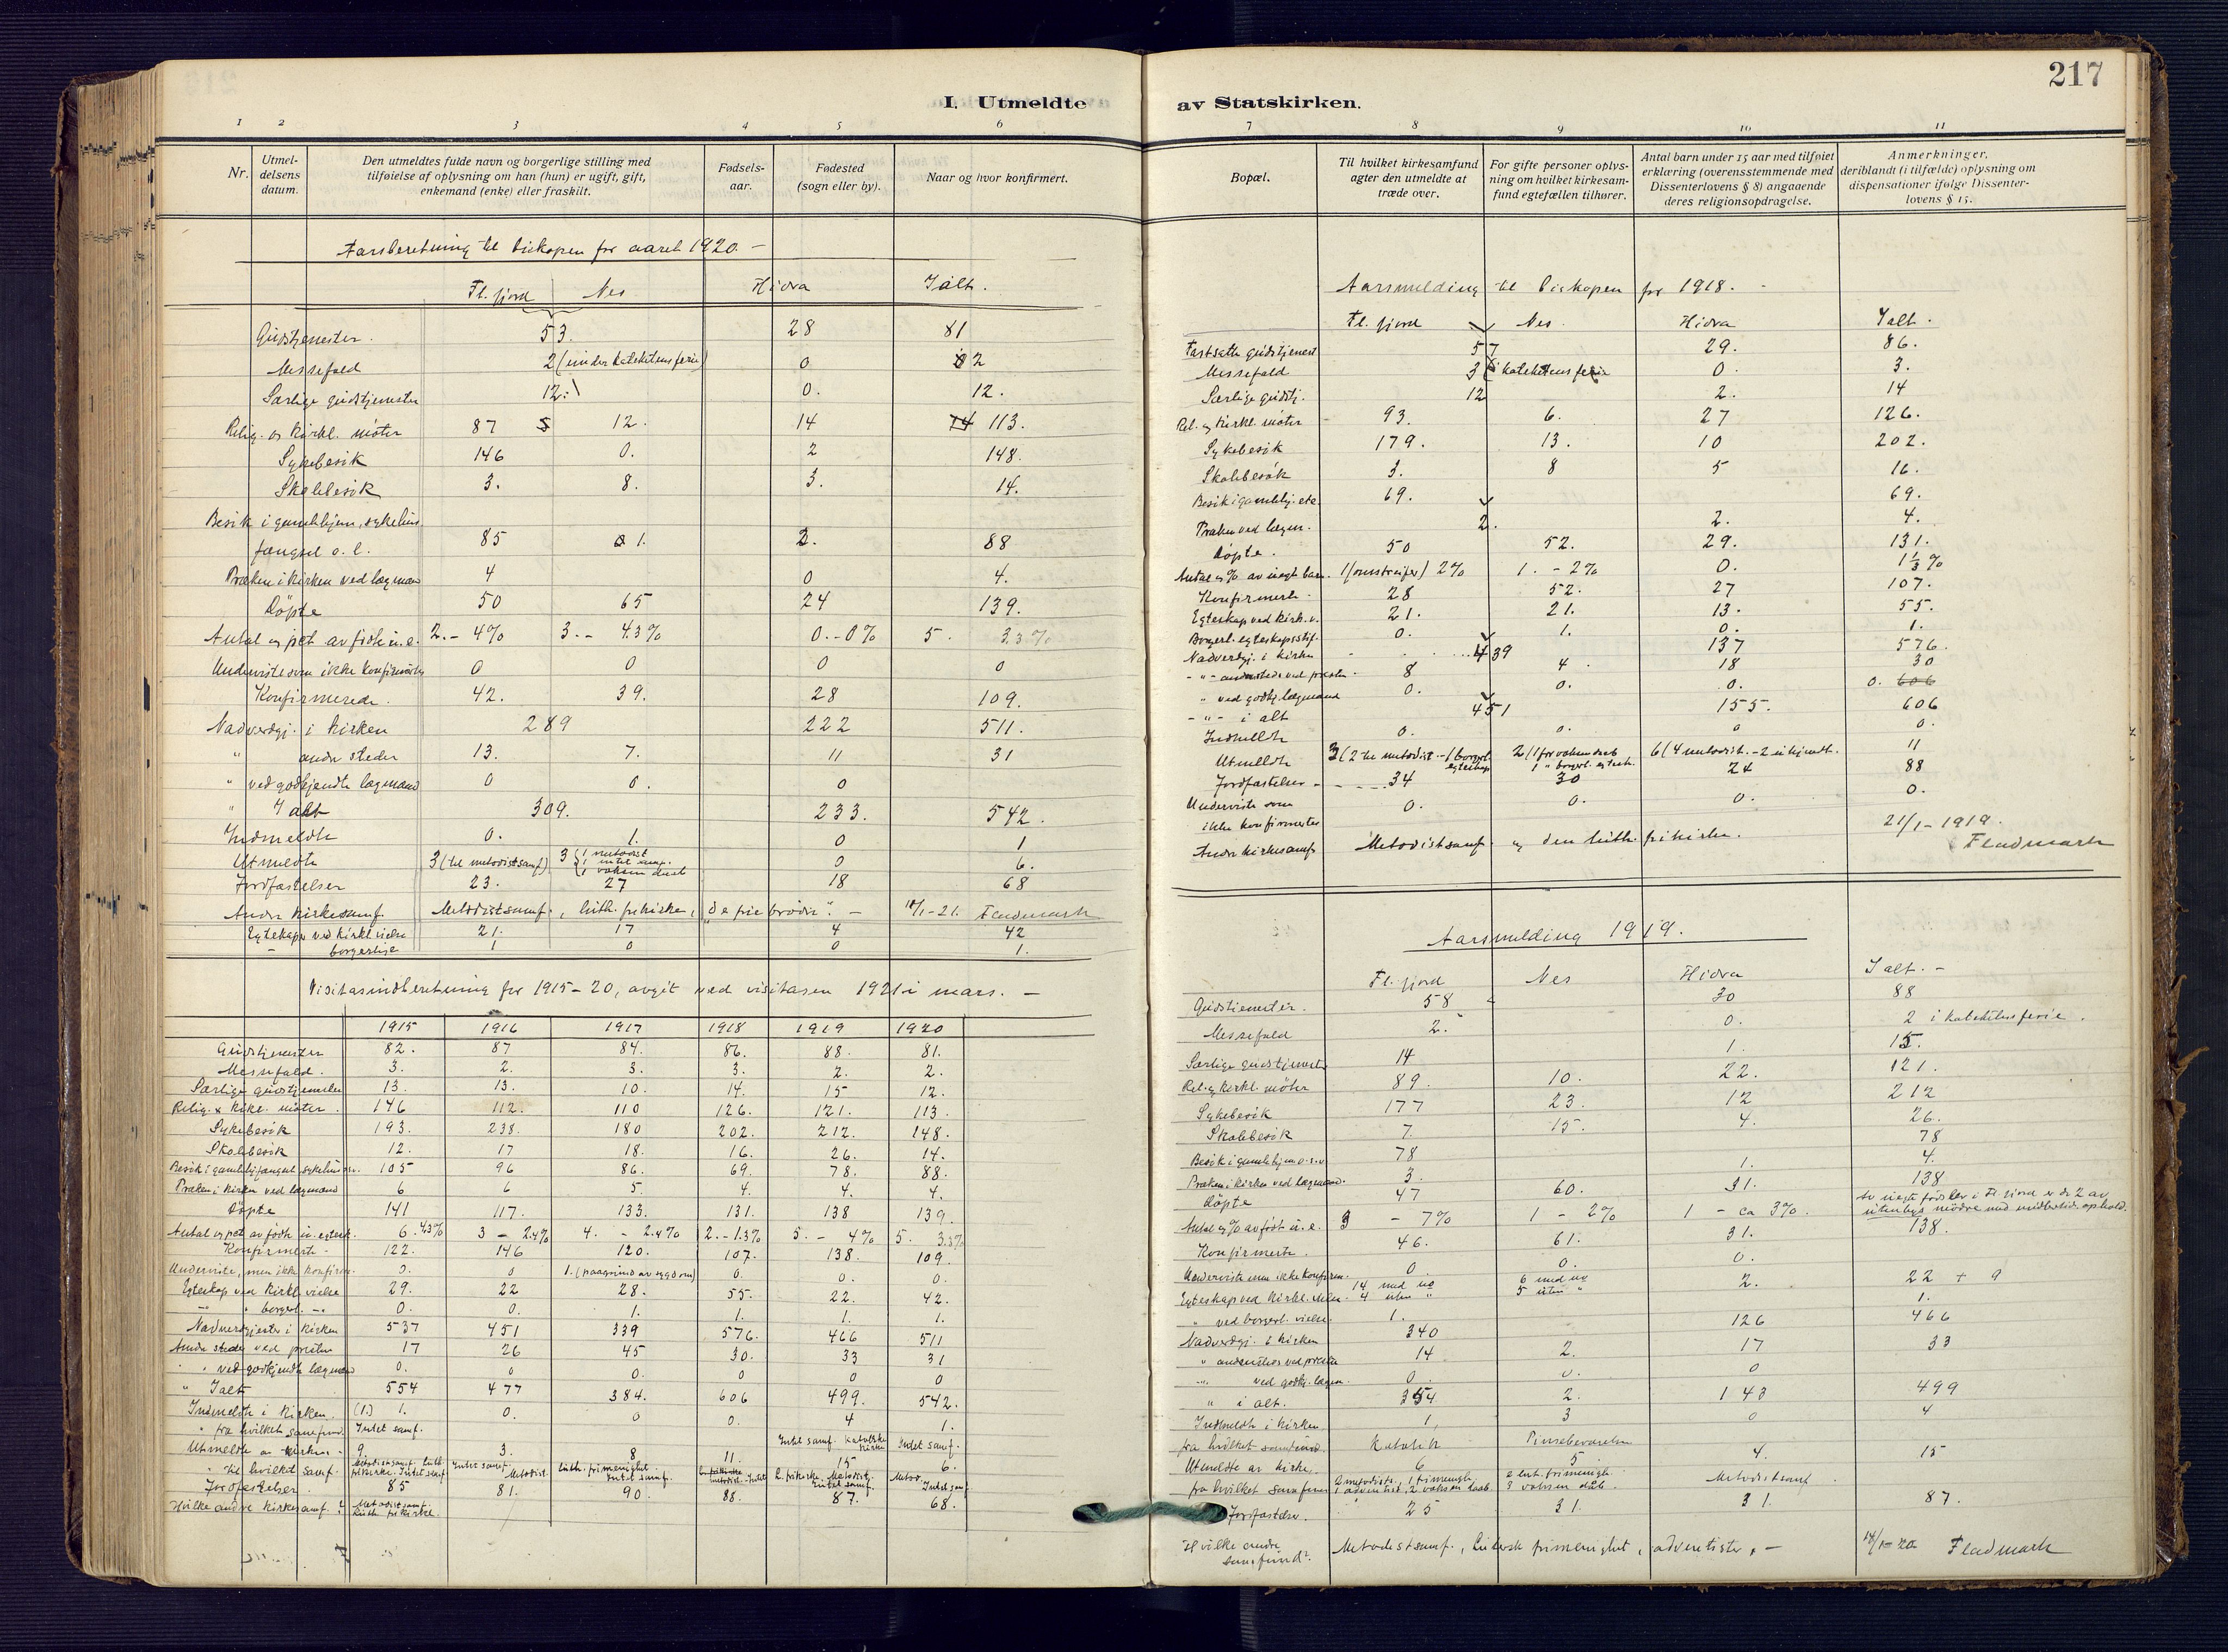 217
I. Utmeldte
av Statskirken.
1 2 3 4 5 6
7 8 9 10 11
Nr. Utmeldelsens datum. Den utmeldtes fulde navn og borgerlige stilling med tilføielse af oplysning om han (hun) er ugift, gift, enkemand (enke) eller fraskilt. Fødselsaar. Fødested (sogn eller by). Naar og hvor konfirmert.
Bopæl. Til hvilket kirkesamfund agter den utmeldte at træde over. For gifte personer oplysning om hvilket kirkesamfund egtefællen tilhører. Antal barn under 15 aar med tilføiet erklæring (overensstemmende med Dissenterlovens § 8) angaaende deres religionsopdragelse. Anmerkninger, deriblandt (i tilfælde) oplysning om dispensationer ifølge Dissenterlovens § 15.
Aarsberetning til biskopen for aaret 1920. -
Fl. fjord Nes Hidra Ialt.
Gudstjenester. 53. 28 81
Messefald 2 (under katekitens ferie) 0 2
Særlige gudstjenester 12. 0. 12.
Relig. og kirkl. möter 87 12. 14 113.
Sykebesök 146 0. 2 148.
Skolebesök 3. 8. 3. 14.
Besök i gamlehjem, sykehus.
fængsel o. l. 85 1. 2. 88
Præken i kirken ved lægmand 4 0 4.
Döpte 50 65 24 139.
Antal og pct av födte u. e. 2. - 4% 3. - 4.3% 0. - 0% 5. 3.3%
Underviste som ikke konfirmertes 0 0 0 0
Konfirmerede. 42. 39. 28 109.
Nadverdgj. i kirken 289 222 511.
" andre steder 13. 7. 11 31
" ved godkjendte lægmand 0 0. 0
" I alt 309. 233. 542.
Indmeldte 0. 1. 0 1
Utmeldte 3 (til metodistsamf) 3 (1 metodist 1 intet samf. 1 voksen daab 0 6.
Jordfæstelser 23. 27 18 68
Andre kirkesamf. Metodistsamf., luth. frikirke, "de frie brødre". - 18/1-21. Fladmark
Egteskaper ved kirkl vielse 21. 17 4 42
- borgerlige 1 0 0 1.
Visitasindberetning for 1915-20, avgit ved visitasen 1921 i mars. -
1915 1916 1917 1918 1919 1920
Gudstjenester 82. 87 84. 86. 88. 81.
Messefald. 3. 2. 3. 3. 2. 2.
Særlige gudstjenester 13. 13. 10. 14. 15 12.
Relig. & kirkl. möter. 146 112. 110 126. 121. 113.
Sykebesök 193. 238. 180 202. 212. 148.
Skolebesök 12. 17 18. 16. 26. 14.
Besök i gamlehj. fængsel, sykehus osv. 105 96 86. 69. 78. 88.
Præken i kirken ved lægmand 6 6 5. 4. 4. 4.
Döpte 141 117. 133. 131. 138 139.
Antal og pct av födte u. egtesk. 6. 4.3% 3 - 2.4% 4. - 2.4% 2. - 1.3% 5. - 4% 5. 3.3%
Konfirmerte - 122. 146 120. 107. 138. 109.
Underviste, men ikke konfirm. 0. 0 1. (paagrund av sygdom) 0. 0. 0.
Egteskap ved kirkl. vielse 29. 22 28. 55. 22. 42.
-"- " borgerl. -"- 0. 0. 1. 1. 1. 1.
Nadverdgjester i kirken 537 451 339 576. 466 511
Andre steder ved presten 17 26 45 30. 33 31
" " ved godkjendte lægmand 0. 0 0. 0 0 0
" Ialt 554 477 384. 606 499. 542.
Indmeldte i kirken. (1.) 1. 0. 0 0. 4 1.
" fra hvilket samfund Intet samf. Intet samf. Katolske kirke Intet samf.
Utmeldte av kirken - 9. 3. 8 11. 15 6.
" til hvilket samf. Metodistsamf. Luth frikirke. Intet samf Intet samf. Metodist. Luth. frimenighet Intet samf. L. frikirke. Metodistj. Intet samf. Metod. Intet samf
Jordfæstelser. 85 81. 90. 88. 87. 68.
Hvilke andre kirkesamf.? Metodistsamf. Luth frikirke.
Aarsmelding til biskopen for 1918. -
Fl. fjord Nes. Hidra Ialt.
Fastsatte gudstjenest 57 29. 86.
Messefald 3 (i katekitens ferie 0. 3.
Særlige gudstj. 12 2. 14
Rel. og kirkl. möter 93. 6. 27 126.
Sykebesök 179. 13. 10 202.
Skolebesök 3. 8 5 16.
Besök i gamlehj. etc. 69. 69.
Præken ved lægm. 2. 2. 4.
Döpte. 50 52. 29. 131.
Antal og % av uegte barn. 1 (omstreifer) 2% 1. - 2% 0. 1 1/3 %
Konfirmerte 28 52. 27 107.
Egteskap ved kirk. v. 21. 21. 13. 55.
Borgerl. egteskapsstif. 0. 1. 0. 1.
Nadverdgj. i kirken 439 137 576.
-"- andensteds ved presten 8 4. 18 30
" ved godkj. lægmand 0. 0. 0. 0. 606
-"- i alt 451 155. 606
Indmeldte 0. 0. 0 0.
Utmeldte 3 (2 til metodist - 1 borgerl. egteskap 2 (1 for voksendaab 1 " borgerl. egtesk. 6 (4 metodist. - 2 uekjendt. 11
Jordfæstelser - 34 30 24 88
Underviste som ikke konfirmertes 0. 0. 0. 0.
Andre kirkesamf. Metodistsamf. og den luth. frikirke. 21/1-1919. Fladmark
Aarsmelding 1919.
Fl. fjord Nes Hidra I alt. -
Gudstjenester. 58 30 88
Messefald 2. 0. 2 i katekitens ferie.
Særlige gudstjenester 14 1. 15.
Rel. og kirkl. möter 89. 10. 22. 121.
Sykebesök 177 23. 12 212
Skolebesök 7. 15. 4. 26.
Besök i gamlehjem o. s. v. 78 78
Præken i kirken ved lægmand. 3. 1. 4.
Döpte 47 60. 31. 138
Antal og % av födt u. e. 3 - 7% 1 - 2% 1 - ca 3%. Av uegte födsler i Fl. fjord er de 2 av utenbys mödre med midlertid. ophold.
Konfirmerte. 46. 61. 31. 138.
Underviste men ikke konfirm. 0 0. 0.
Egteskap ved kirkl. vielse 14 med ng 4 uten " 6 med ng 5 uten " 2. 22 + 9
" ved borgerl. vielse. 1. 1.
Nadverdgj. i kirken 340 126 466
" andensteds ved presten 14 2. 17 33
" ved godkj. lægm. 0. 0. 0
" i alt. 354 2. 143 499
Indmeldte i kirken 1, 3 0 4
fra hvilket samfund. Katolik Pinsebevægelsen
Utmeldte av kirke. 6 5 4. 15
fra hvilket samfund 2 metodister, 1 frimenigh. 1 adventist, 2 voksen daab 2 luth. frimenigh. 3 voksen daab. Metodistsamf.
Jordfæstelser. 25 31. 31. 87.
Hvilke andre samfund? Metodistsamf., Luthersk frimenighet, adventister, - 14/1-20 Fladmark